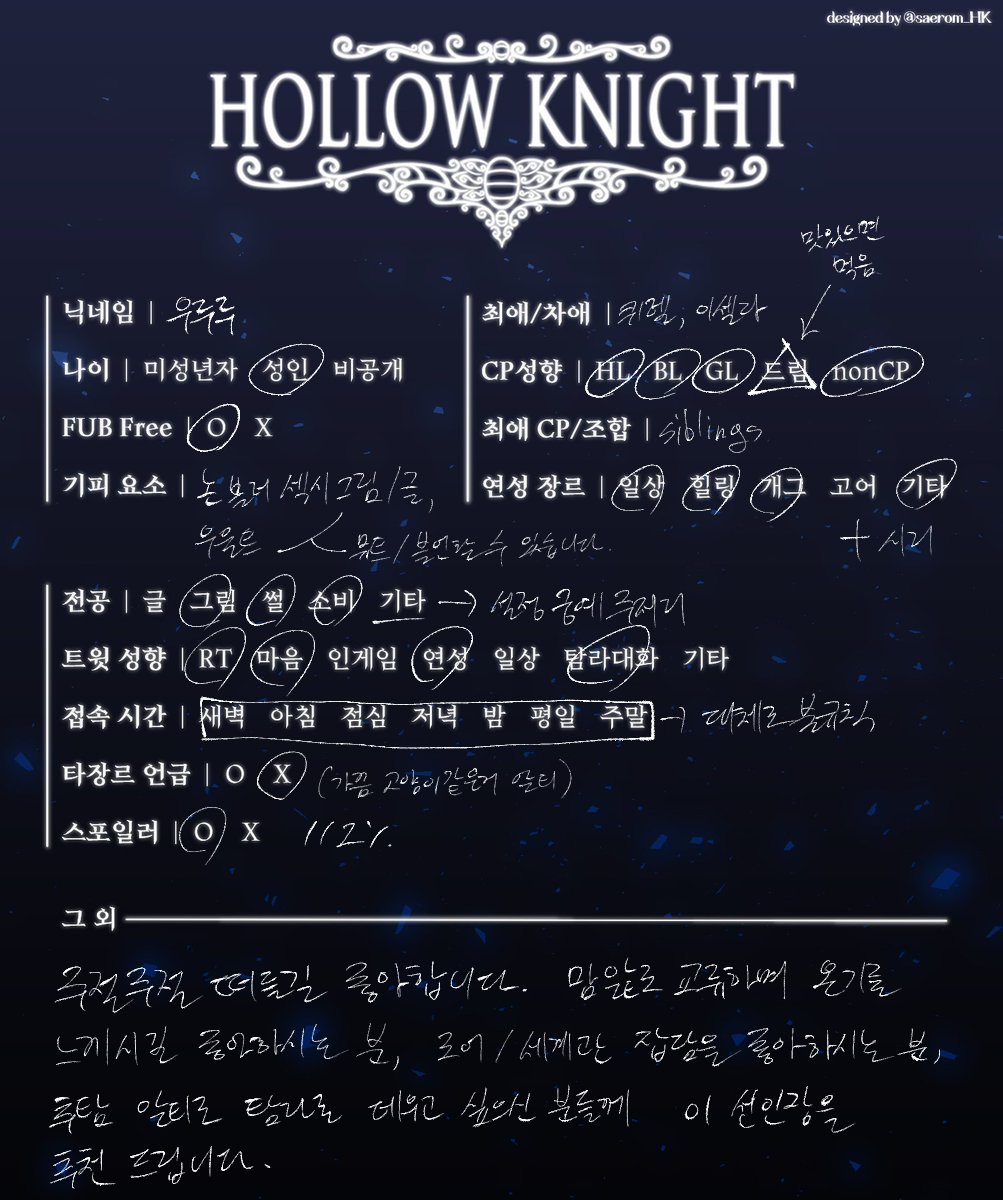 designed by @saerom_HK
HOLLOW KNIGHT
맛있으면
먹음
닉네임 | 우루루
나이 | 미성년자 성인 비공개
FUB Free | O X
기피 요소 | 논블러 섹시그림/글,
우울트 뮤트/블언할 수 있습니다.
최애/차애 | 퀴렐, 이셀라
CP성향 | HL BL GL 드림 nonCP
최애 CP/조합 | siblings
연성 장르 | 일상 힐링 개그 고어 기타
+ 시리
전공 | 글 그림 썰 소비 기타 → 설정 공예 주저리
트윗 성향 | RT 마음 인게임 연성 일상 탐라대화 기타
접속 시간 | 새벽 아침 점심 저녁 밤 평일 주말 → 대체로 불규칙
타장르 언급 | O X (가끔 고양이같은거 알티)
스포일러 | O X 112%
그 외
주절주절 떠들길 좋아합니다. 맘알로 교류하며 온기를
느끼시길 좋아하시는 분, 로어/세계관 잡담을 좋아하시는 분,
후탐 알티로 탐라를 데우고 싶으신 분들께 이 선인장을
추천 드립니다.